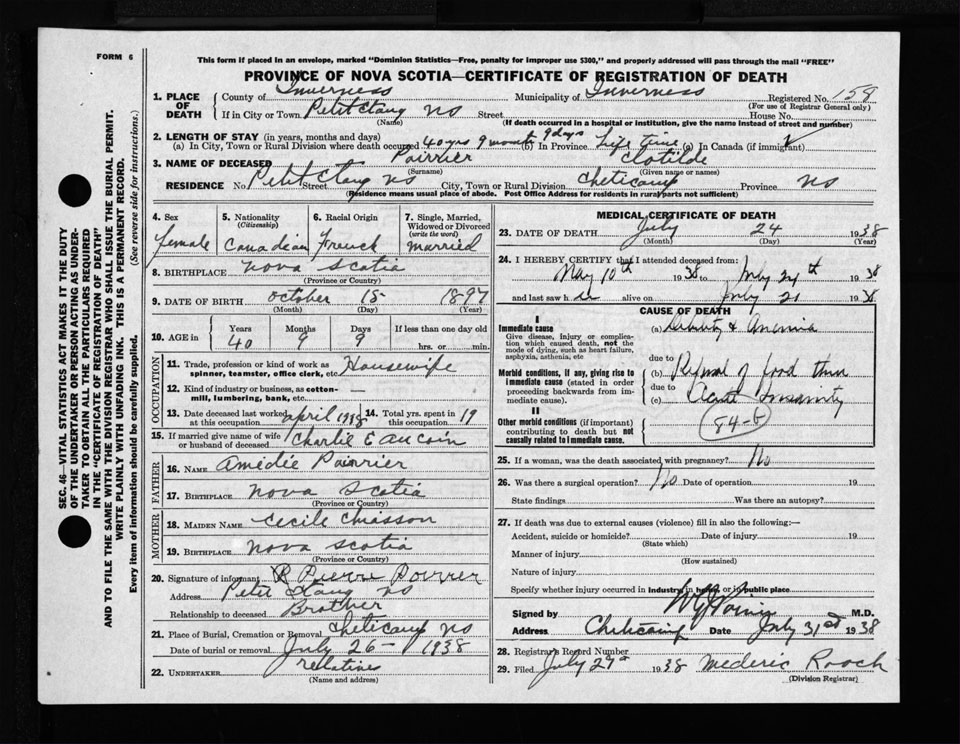 FORM 6
This form if placed in an envelope, marked "Dominion Statistics—Free, penalty for improper use $300," and properly addressed will pass through the mail "FREE"
PROVINCE OF NOVA SCOTIA—CERTIFICATE OF REGISTRATION OF DEATH
1. PLACE OF DEATH County of Inverness Municipality of Inverness Registered No. 158
(For use of Registrar General only)
If in City or Town Petit Etang NS Street House No.
(Name) (If death occurred in a hospital or institution, give the name instead of street and number)
2. LENGTH OF STAY (in years, months and days)
(a) In City, Town or Rural Division where death occurred 40 yrs 9 months 9 days (b) In Province Life time (c) In Canada (if immigrant)
3. NAME OF DECEASED Poirrier Clotilde
(Surname) (Given name or names)
RESIDENCE No. Petit Etang NS Street City, Town or Rural Division Cheticamp Province NS
(Residence means usual place of abode. Post Office Address for residents in rural parts not sufficient)
4. Sex female
5. Nationality (Citizenship) Canadian
6. Racial Origin French
7. Single, Married, Widowed or Divorced (write the word) married
8. BIRTHPLACE Nova Scotia
(Province or Country)
9. DATE OF BIRTH October 15 1897
(Month) (Day) (Year)
10. AGE in Years 40 Months 9 Days 9 If less than one day old hrs. or min.
OCCUPATION
11. Trade, profession or kind of work as spinner, teamster, office clerk, etc. Housewife
12. Kind of industry or business, as cotton-mill, lumbering, bank, etc. —
13. Date deceased last worked at this occupation april 1938 14. Total yrs. spent in this occupation 19
15. If married give name of wife or husband of deceased Charlie E aucoin
FATHER
16. NAME Amédie Poirrier
17. BIRTHPLACE Nova Scotia
(Province or Country)
MOTHER
18. MAIDEN NAME Cecile Chiasson
19. BIRTHPLACE Nova Scotia
(Province or Country)
20. Signature of informant Pierre Poirrier
Address Petit Etang NS
Relationship to deceased Brother
21. Place of Burial, Cremation or Removal Cheticamp NS
Date of burial or removal July 26 – 1938
22. UNDERTAKER relatives
(Name and address)
MEDICAL CERTIFICATE OF DEATH
23. DATE OF DEATH July 24 1938
(Month) (Day) (Year)
24. I HEREBY CERTIFY that I attended deceased from:
May 10th 1938 to July 24th 1938
and last saw her alive on July 21 1938
CAUSE OF DEATH
I
Immediate cause (a) Debility & Anemia
Give disease, injury or complication which caused death, not the mode of dying, such as heart failure, asphyxia, asthenia, etc
due to
Morbid conditions, if any, giving rise to immediate cause (stated in order proceeding backwards from immediate cause). (b) Refusal of food thru
due to
(c) Acute Insanity
II
84-b
Other morbid conditions (if important) contributing to death but not causally related to immediate cause.
25. If a woman, was the death associated with pregnancy? No
26. Was there a surgical operation? No Date of operation 19
State findings Was there an autopsy?
27. If death was due to external causes (violence) fill in also the following:—
Accident, suicide or homicide? Date of injury 19
(State which)
Manner of injury
(How sustained)
Nature of injury
Specify whether injury occurred in industry, in home, or in public place
Signed by M.D.
Address Cheticamp Date July 31st 1938
28. Registrar's Record Number
29. Filed July 27th 1938 Mederic Roach
(Division Registrar)
SEC. 46—VITAL STATISTICS ACT MAKES IT THE DUTY
OF THE UNDERTAKER OR PERSON ACTING AS UNDERTAKER TO OBTAIN ALL THE PARTICULARS REQUIRED
IN THE "CERTIFICATE OF REGISTRATION OF DEATH"
AND TO FILE THE SAME WITH THE DIVISION REGISTRAR WHO SHALL ISSUE THE BURIAL PERMIT.
WRITE PLAINLY WITH UNFADING INK. THIS IS A PERMANENT RECORD.
Every item of information should be carefully supplied. (See reverse side for instructions.)